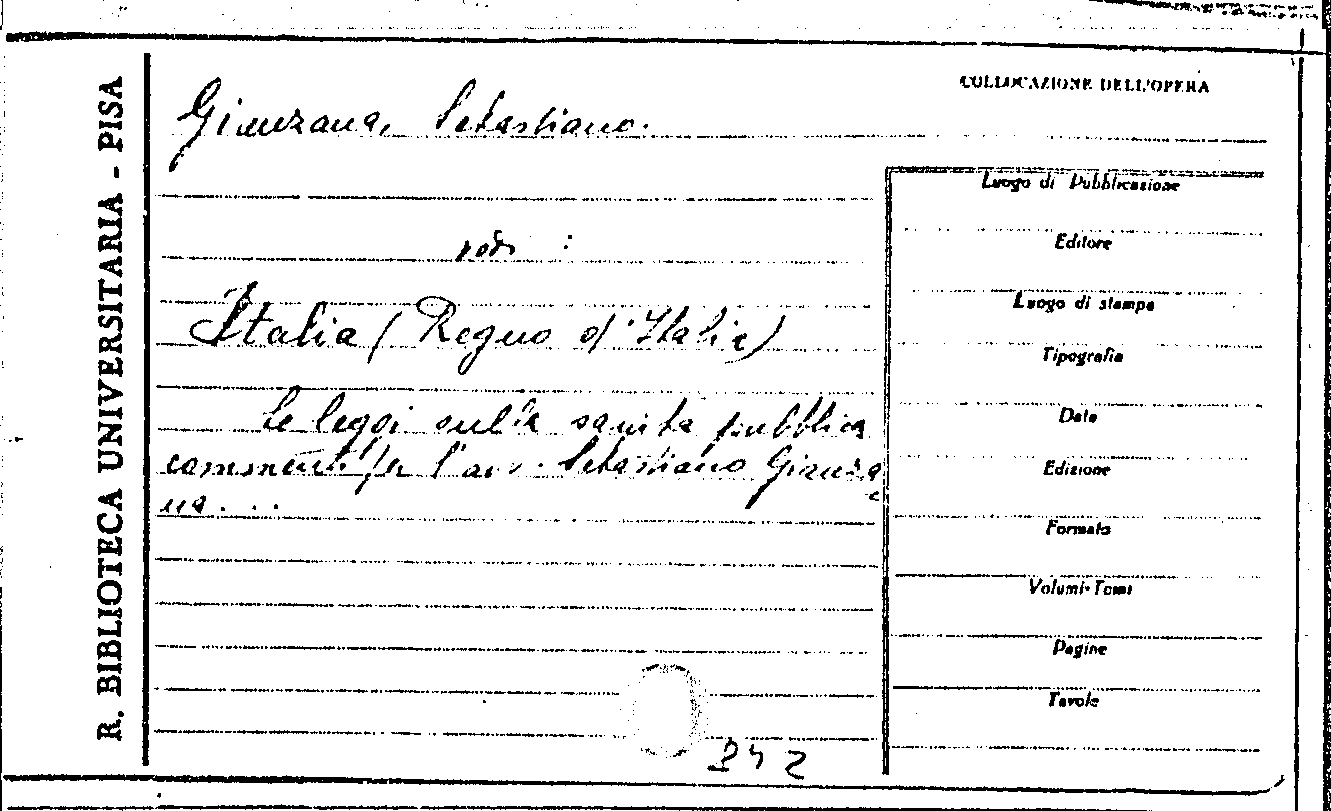 R. BIBLIOTECA UNIVERSITARIA - PISA
COLLOCAZIONE DELL'OPERA
Gianzana, Sebastiano.
vedi :
Italia (Regno d'Italia)
Le leggi sulla sanità pubblica
commenti per l'avv. Sebastiano Gianza
na...
242
Luogo di Pubblicazione
Editore
Luogo di stampa
Tipografia
Data
Edizione
Formato
Volumi-Tomi
Pagine
Tavole